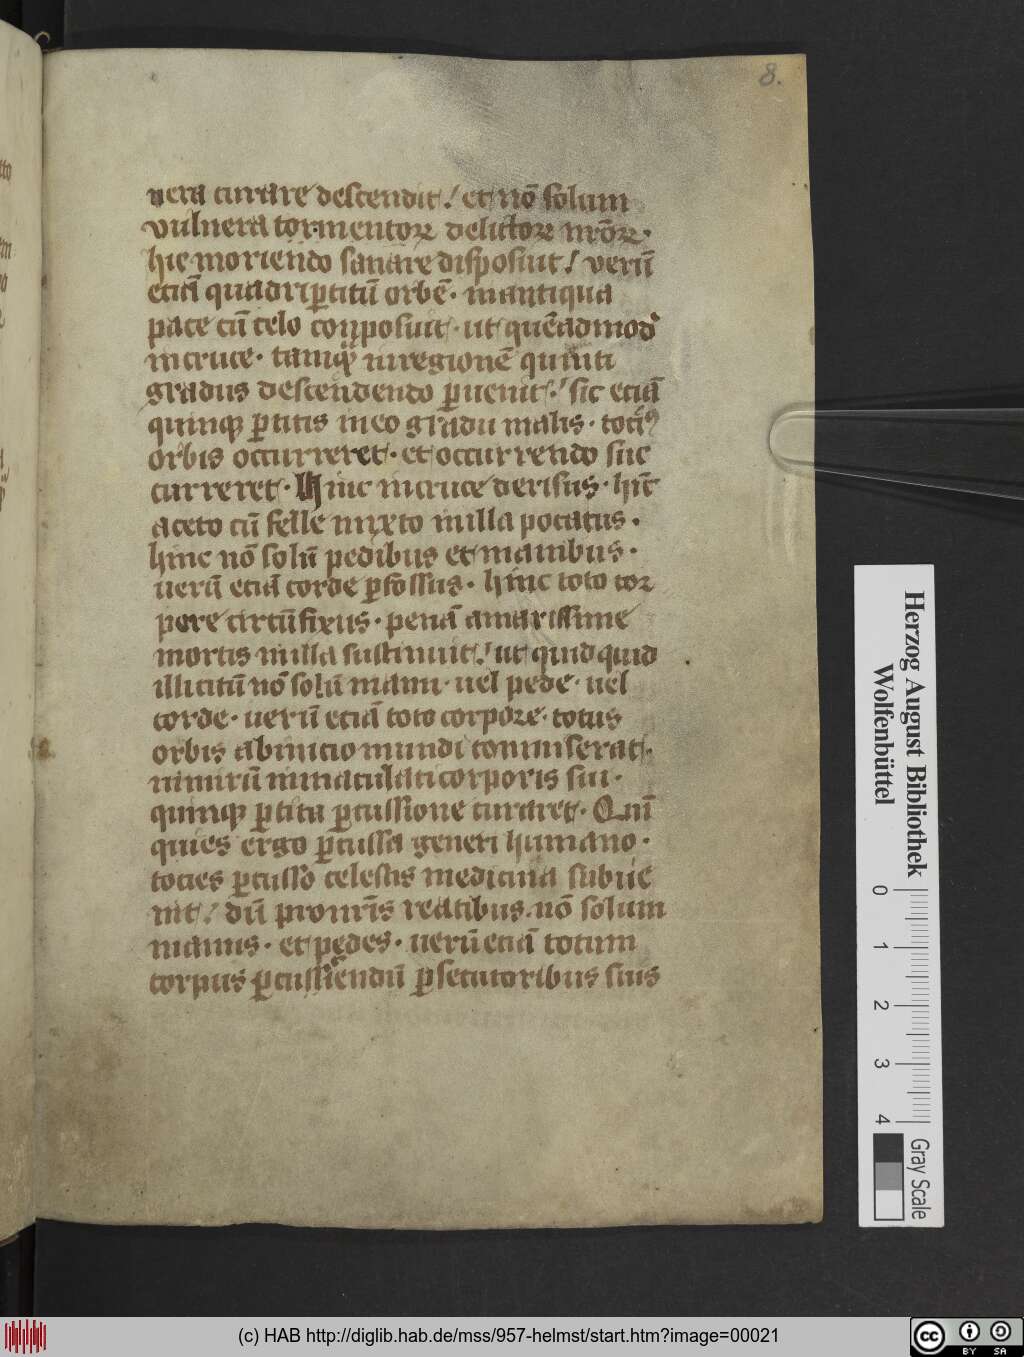 8.
uera curare descendit! et nō solum
vulnera tormentoꝝ delictoꝝ nrōꝝ·
hic moriendo sanare disposuit! verū
eciā quadriꝑtitū orbē· in antiqua
pace cū celo conposuit· ut quēadmod
in cruce· tamqͣ in regionē quinti
gradus descendendo ꝑuenit·! sic eciā
quinqꝫ ꝑtitis in eo gradu malis· toci᷒
orbis occurreret· et occurrendo suc
curreret· Hinc in cruce derisus· hīc
aceto cū felle mixto in illa potatus·
hinc nō solū pedibus et manibus·
uerū eciā corde ꝑfossus· hinc toto cor
pore circūfixus· penā amarissime
mortis in illa sustinuit! ut quid quid
illicitū nō solū manu· uel pede· uel
corde· uerū eciā toto corpore· totus
orbis ab inicio mundi conmiserat·
nimirū inmaculati corporis sui·
quinqꝫ ꝑtita ꝑcussione curaret· Quī
quies ergo ꝑcussa generi humano·
tocies ꝑcusso celestis medicina subue
nit! dū pro nrīs reatibus· nō solum
manus· et pedes· uerū eciā totum
corpus ꝑcussiendū ꝑsecutoribus suis
Herzog August Bibliothek
Wolfenbüttel
0 1 2 3 4
Gray Scale
(c) HAB http://diglib.hab.de/mss/957-helmst/start.htm?image=00021
cc BY SA